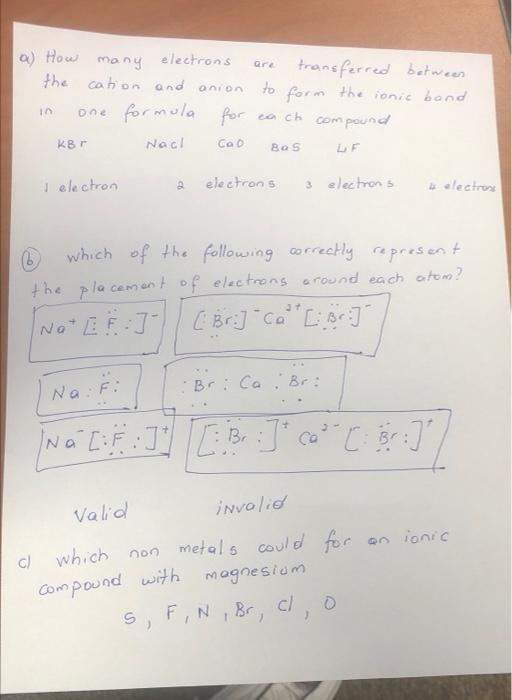 a) How many electrons are transferred between
the cation and anion to form the ionic bond
in one formula for each compound
KBr NaCl CaO BaS LiF
1 electron 2 electrons 3 electrons 4 electrons
b) which of the following correctly represent
the placement of electrons around each atom?
Na⁺ [:F̈:]⁻ [:B̈r:]⁻ Ca²⁺ [:B̈r:]⁻
Na : F̈: :B̈r : Ca : B̈r :
Na⁻ [:F̈:]⁺ [:B̈r:]⁺ Ca²⁻ [:B̈r:]⁺
Valid invalid
c) which non metals could for an ionic
compound with magnesium
S, F, N, Br, Cl, O